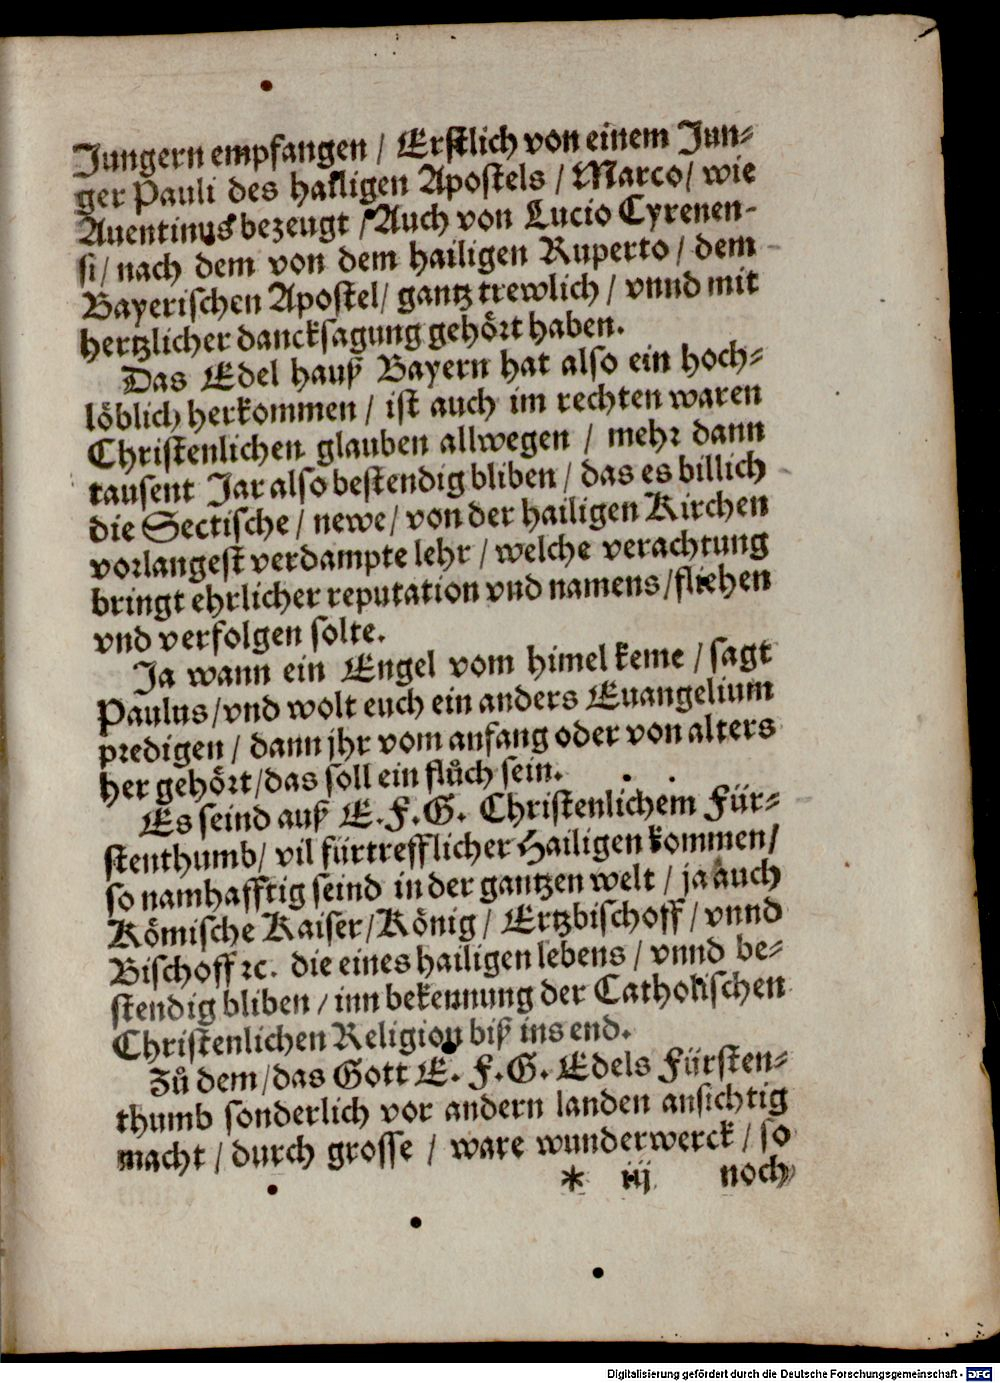 Jungern empfangen / Erstlich von einem Jun⸗
ger Pauli des hailigen Apostels / Marco / wie
Auentinus bezeugt / Auch von Lucio Cyrenen-
si / nach dem von dem hailigen Ruperto / dem
Bayerischen Apostel / gantz trewlich / vnnd mit
hertzlicher dancksagung gehört haben.
Das Edel hauß Bayern hat also ein hoch⸗
löblich herkommen / ist auch im rechten waren
Christenlichen glauben allwegen / mehr dann
tausent Jar also bestendig bliben / das es billich
die Sectische / newe / von der hailigen Kirchen
vorlangest verdampte lehr / welche verachtung
bringt ehrlicher reputation vnd namens / fliehen
vnd verfolgen solte.
Ja wann ein Engel vom himel keme / sagt
Paulus / vnd wolt euch ein anders Euangelium
predigen / dann jhr vom anfang oder von alters
her gehört / das soll ein flůch sein.
Es seind auß E. F. G. Christenlichem Für⸗
stenthumb / vil fürtrefflicher Hailigen kommen /
so namhafftig seind in der gantzen welt / ja auch
Römische Kaiser / König / Ertzbischoff / vnnd
Bischoff ꝛc. die eines hailigen lebens / vnnd be⸗
stendig bliben / inn bekennung der Catholischen
Christenlichen Religion biß ins end.
Zů dem / das Gott E. F. G. Edels Fürsten⸗
thumb sonderlich vor andern landen ansichtig
macht / durch grosse / ware wunderwerck / so
* iij noch
Digitalisierung gefördert durch die Deutsche Forschungsgemeinschaft - DFG